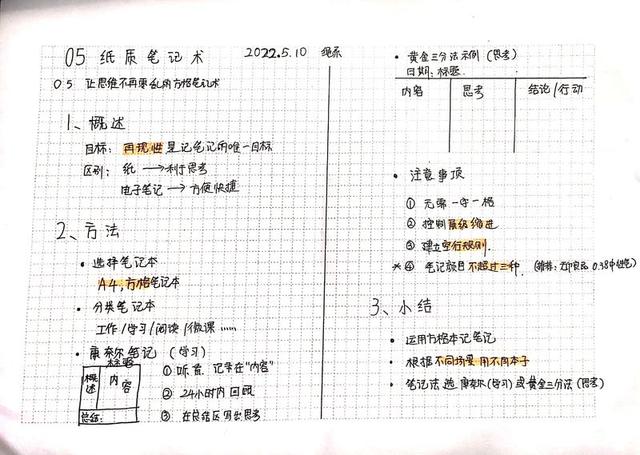 05 纸质笔记术 2022.5.10
05 让思维不再零乱的方格笔记术
1、概述
目标：再现性是记笔记的唯一目标
区别：纸 → 利于思考
电子笔记 → 方便快捷
2、方法
• 选择笔记本
A4，方格笔记本
• 分类笔记本
工作/学习/阅读/微课……
• 康奈尔笔记（学习）
标题
概述 内容
总结：
① 听首 记录在“内容”
② 24小时内回顾
③ 在总结区写出思考
• 黄金三分法示例（思考）
日期：标题
内容 思考 结论/行动
• 注意事项
① 无需一字一格
② 控制层级缩进
③ 建立空行规则.
*④ 笔记颜色不超过三种.
3、小结
• 运用方格本记笔记
• 根据不同场景用不同本子
• 笔记法选康奈尔(学习)或黄金三分法(思考)